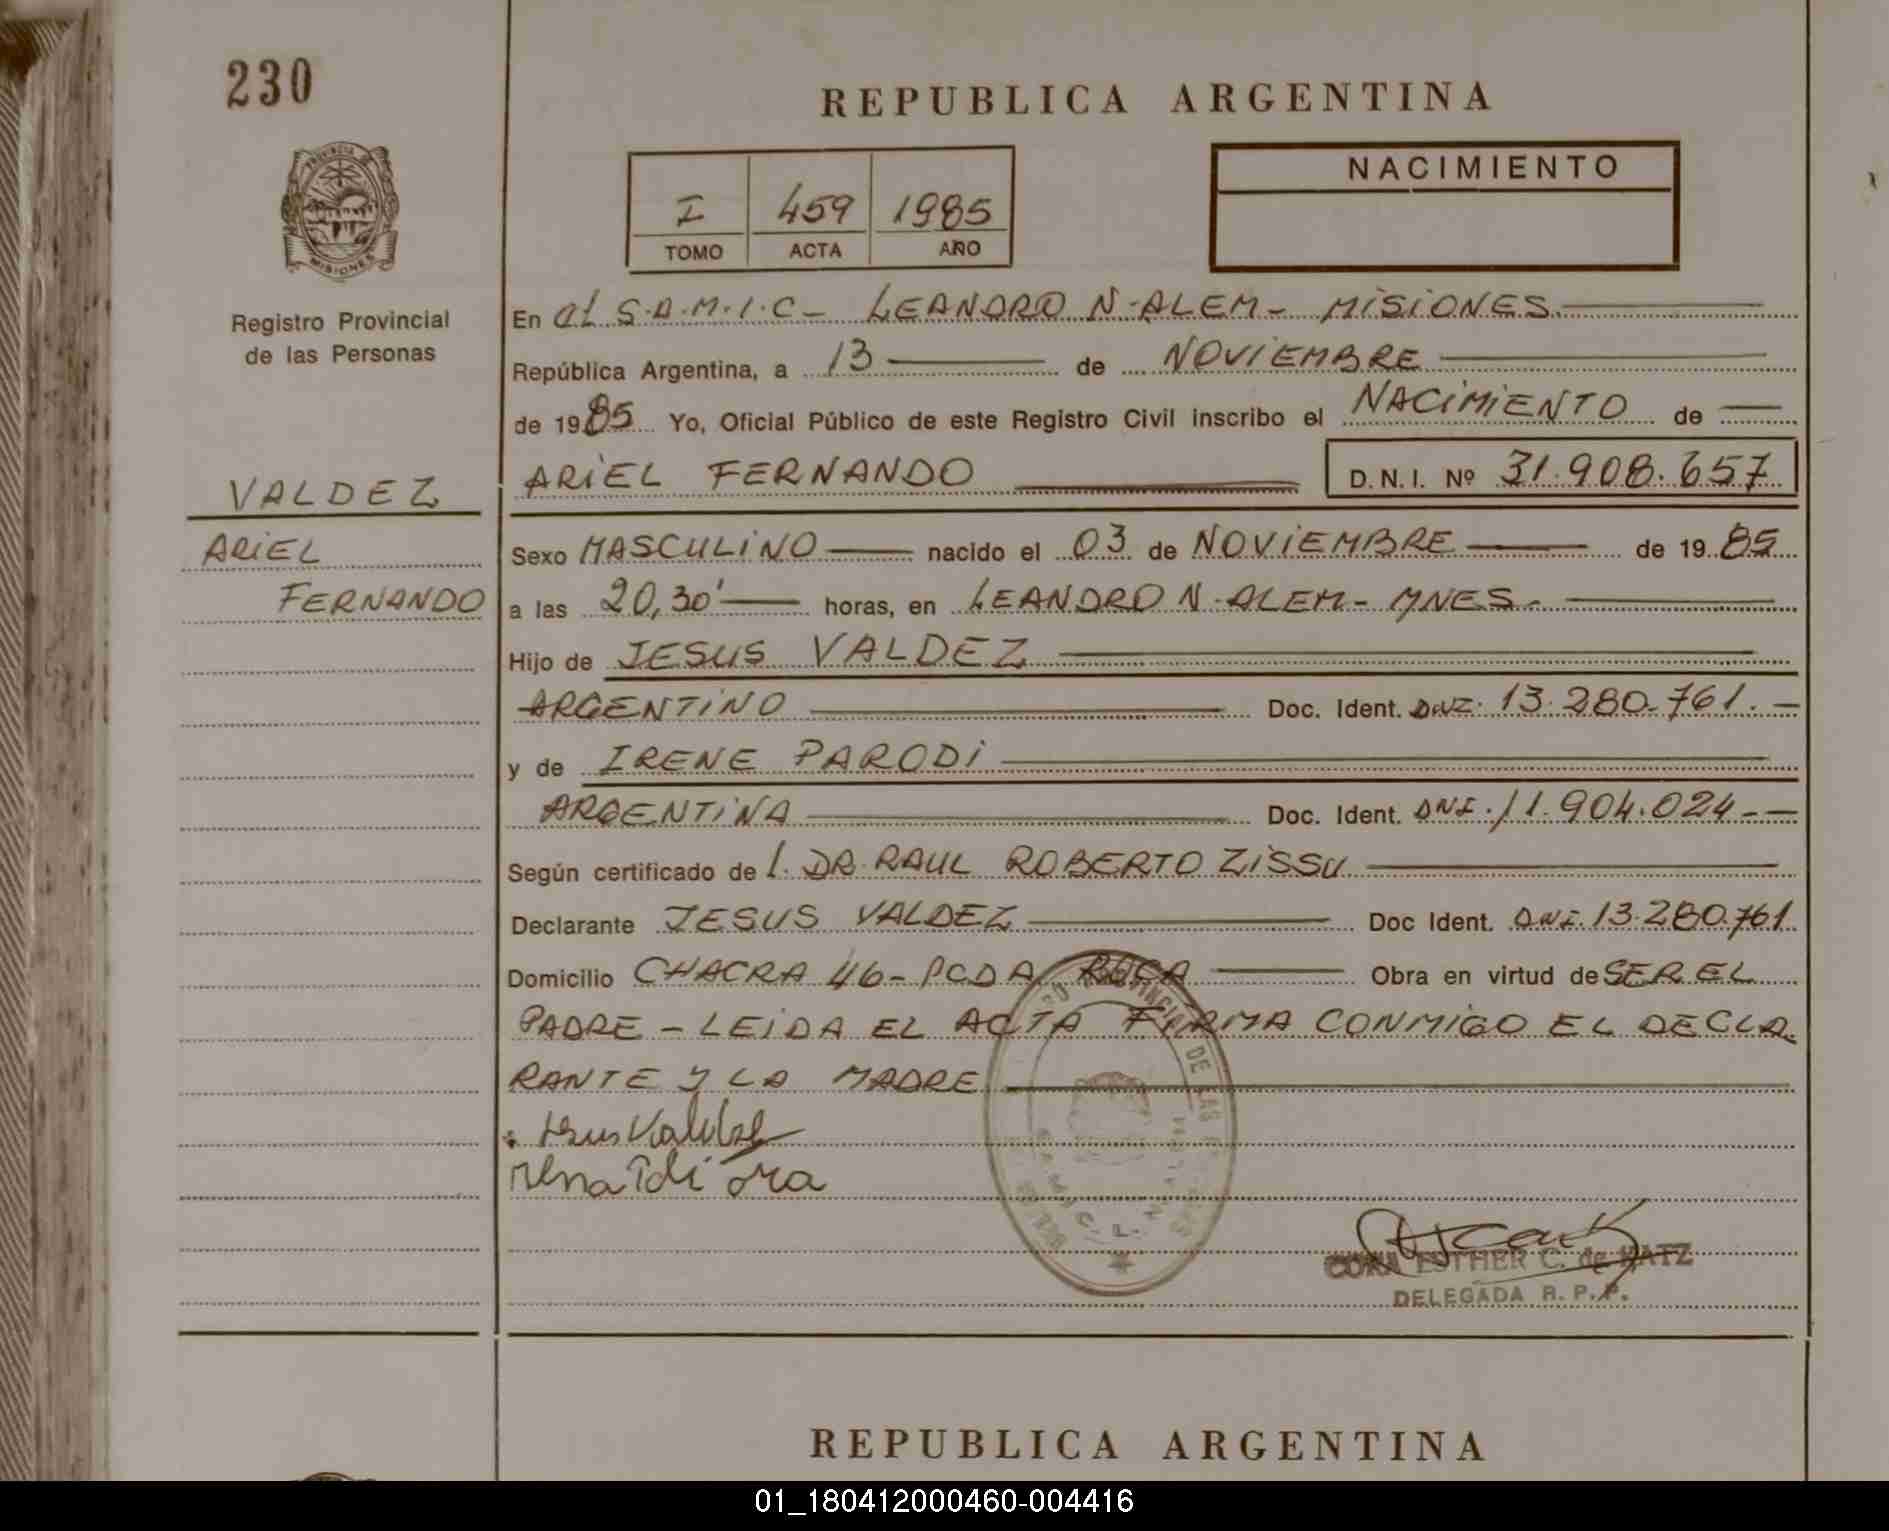 230
REPUBLICA ARGENTINA
PROVINCIA DE
MISIONES
Registro Provincial
de las Personas
I 459 1985
TOMO ACTA AÑO
NACIMIENTO
En el S.A.M.I.C- LEANDRO N-ALEM- MISIONES
República Argentina, a 13 de NOVIEMBRE
de 1985 Yo, Oficial Público de este Registro Civil inscribo el NACIMIENTO de
VALDEZ
ARIEL
FERNANDO
ARIEL FERNANDO D.N.I. Nº 31.908.657
Sexo MASCULINO nacido el 03 de NOVIEMBRE de 1985
a las 20,30' horas, en LEANDRO N-ALEM- MNES.
Hijo de JESUS VALDEZ
ARGENTINO Doc. Ident. DNI. 13.280.761.
y de IRENE PARODI
ARGENTINA Doc. Ident. DNI. 11.904.024
Según certificado de l. DR. RAUL ROBERTO ZISSU
Declarante JESUS VALDEZ Doc Ident. DNI. 13.280.761
Domicilio CHACRA 46- PCDA ROCA Obra en virtud de SER EL
PADRE - LEIDA EL ACTA FIRMA CONMIGO EL DECLA
RANTE Y LA MADRE
CORA ESTHER C. de KATZ
DELEGADA R. P. P.
REPUBLICA ARGENTINA
01_180412000460-004416